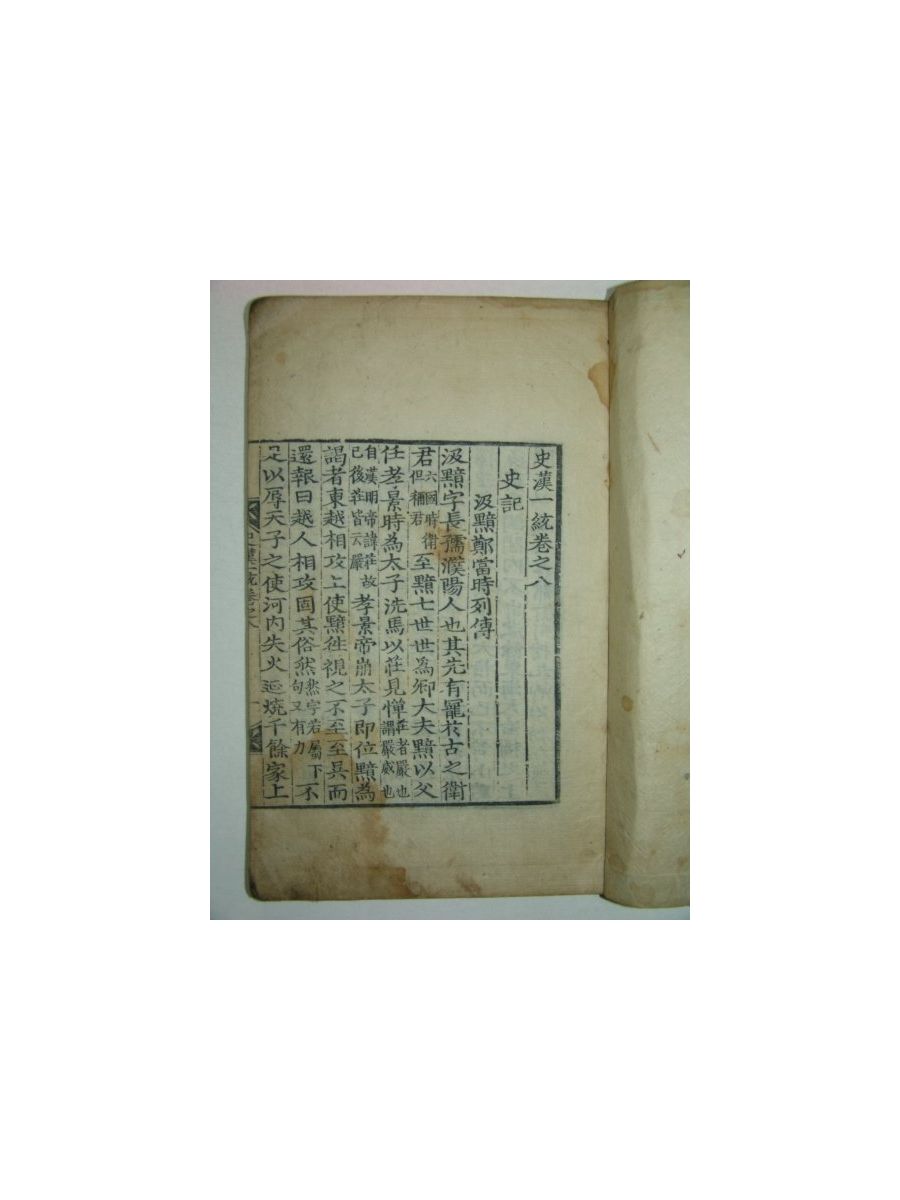 史漢一統卷之八
史記
汲黯鄭當時列傳
汲黯字長孺濮陽人也其先有寵於古之衛
君六國時衛但稱君至黯七世世為卿大夫黯以父
任孝景時為太子洗馬以莊見憚莊者嚴也謂嚴威也
自漢明帝諱莊故已後莊皆云嚴孝景帝崩太子即位黯為
謁者東越相攻上使黯往視之不至至吳而
還報曰越人相攻固其俗然然字若屬下句又有力不
足以辱天子之使河內失火延燒千餘家上
史漢一統卷之八